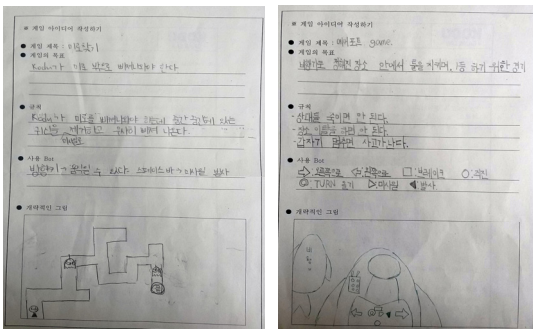 ※ 게임 아이디어 작성하기
● 게임 제목 : 미로찾기
● 게임의 목표
Kodu가 미로 밖으로 빠져나와야 한다
● 규칙
Kodu가 미로를 빠져나와야 하는데 중간 중간에 있는
귀신을 제거하고 무사히 빠져 나온다.
● 사용 Bot
방향키 → 움직일 수 있다. 스페이스 바 → 미사일 발사
● 개략적인 그림
※ 게임 아이디어 작성하기
● 게임 제목 : 에어포트 game.
● 게임의 목표
안에서 룰을 지키며, 1등 하기 위한 경기
● 규칙
- 상대를 죽이면 안 된다.
- 장소 이탈을 하면 안 된다.
- 갑자기 멈추면 사고가 난다.
● 사용 Bot
⇨:오른쪽으로 ⇦:왼쪽으로 □:브레이크 ○:직진
TURN 돌기 ▷미사일 ◀발사
● 개략적인 그림